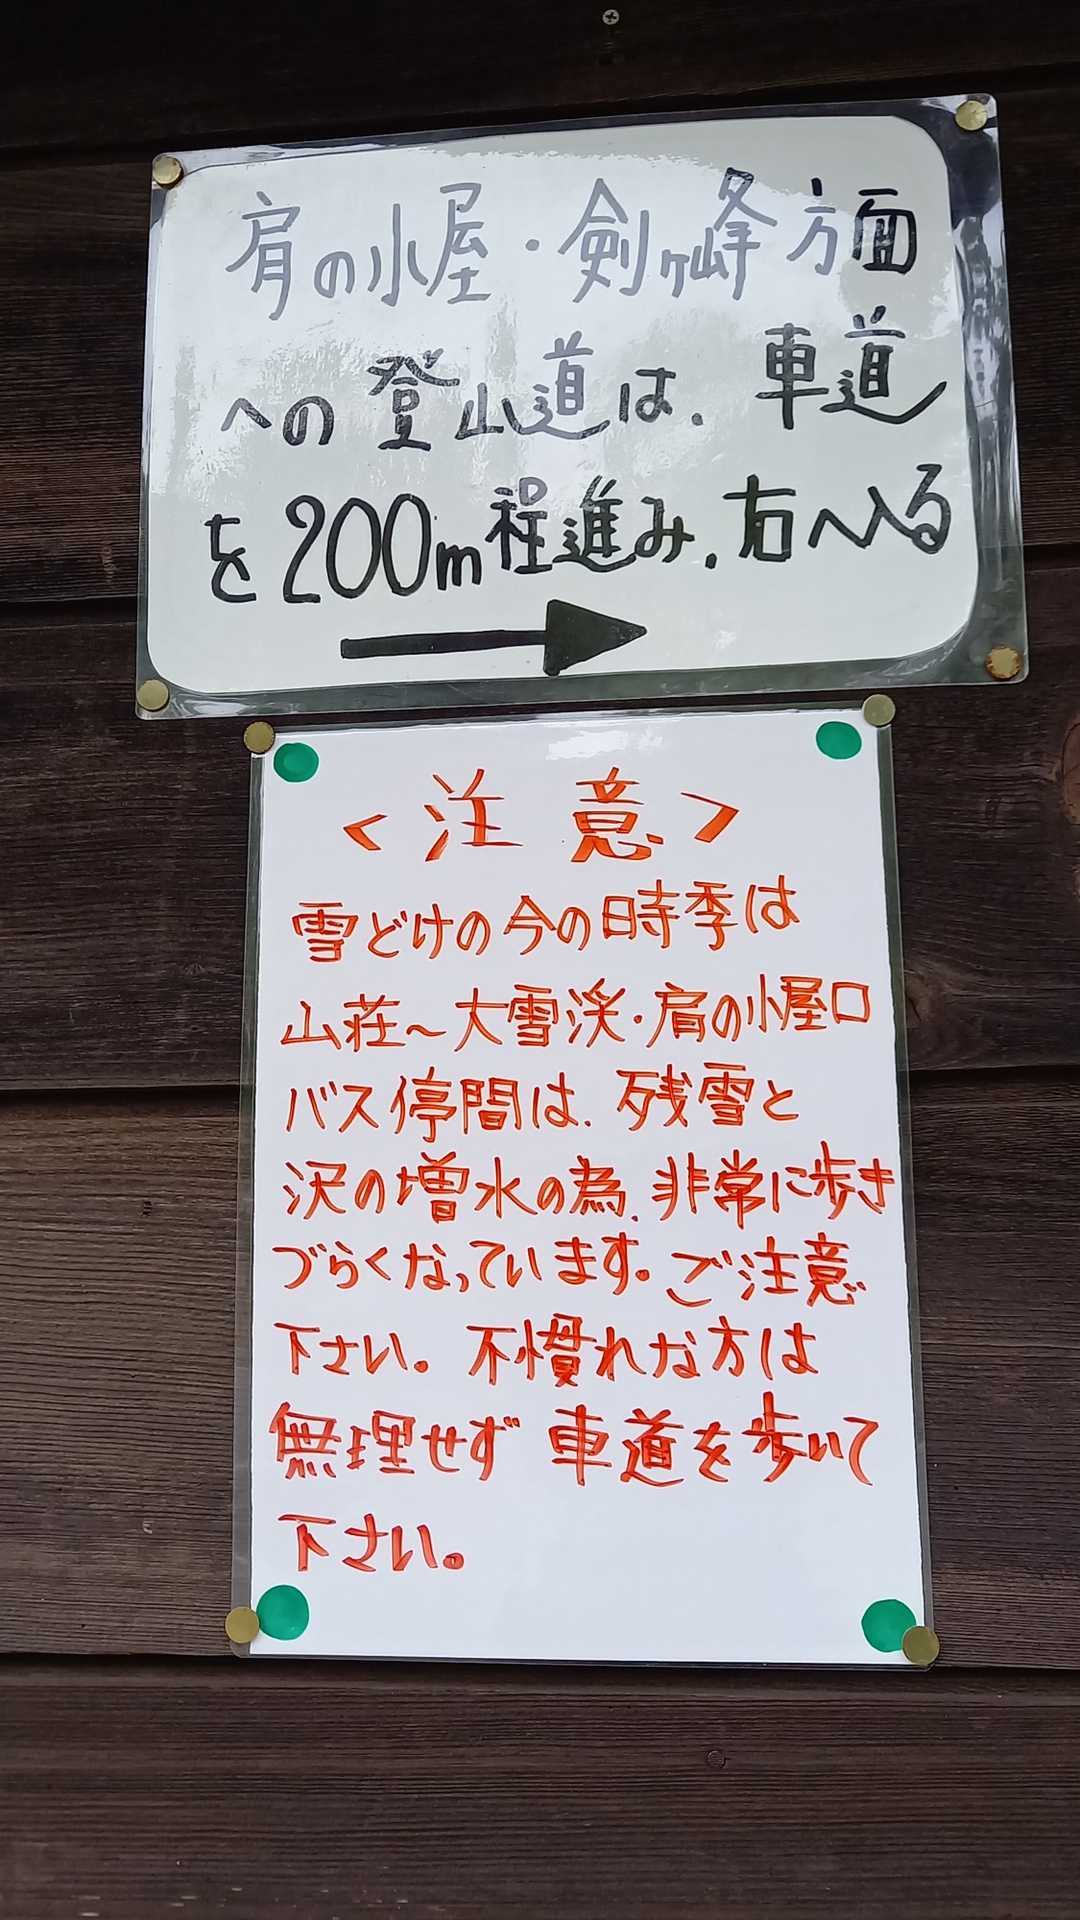 肩の小屋・剣ヶ峰方面
への登山道は、車道
を200m程進み、右へ入る
<注意>
雪どけの今の時季は
山荘～大雪渓・肩の小屋口
バス停間は、残雪と
沢の増水の為、非常に歩き
づらくなっています。ご注意
下さい。不慣れな方は
無理せず車道を歩いて
下さい。